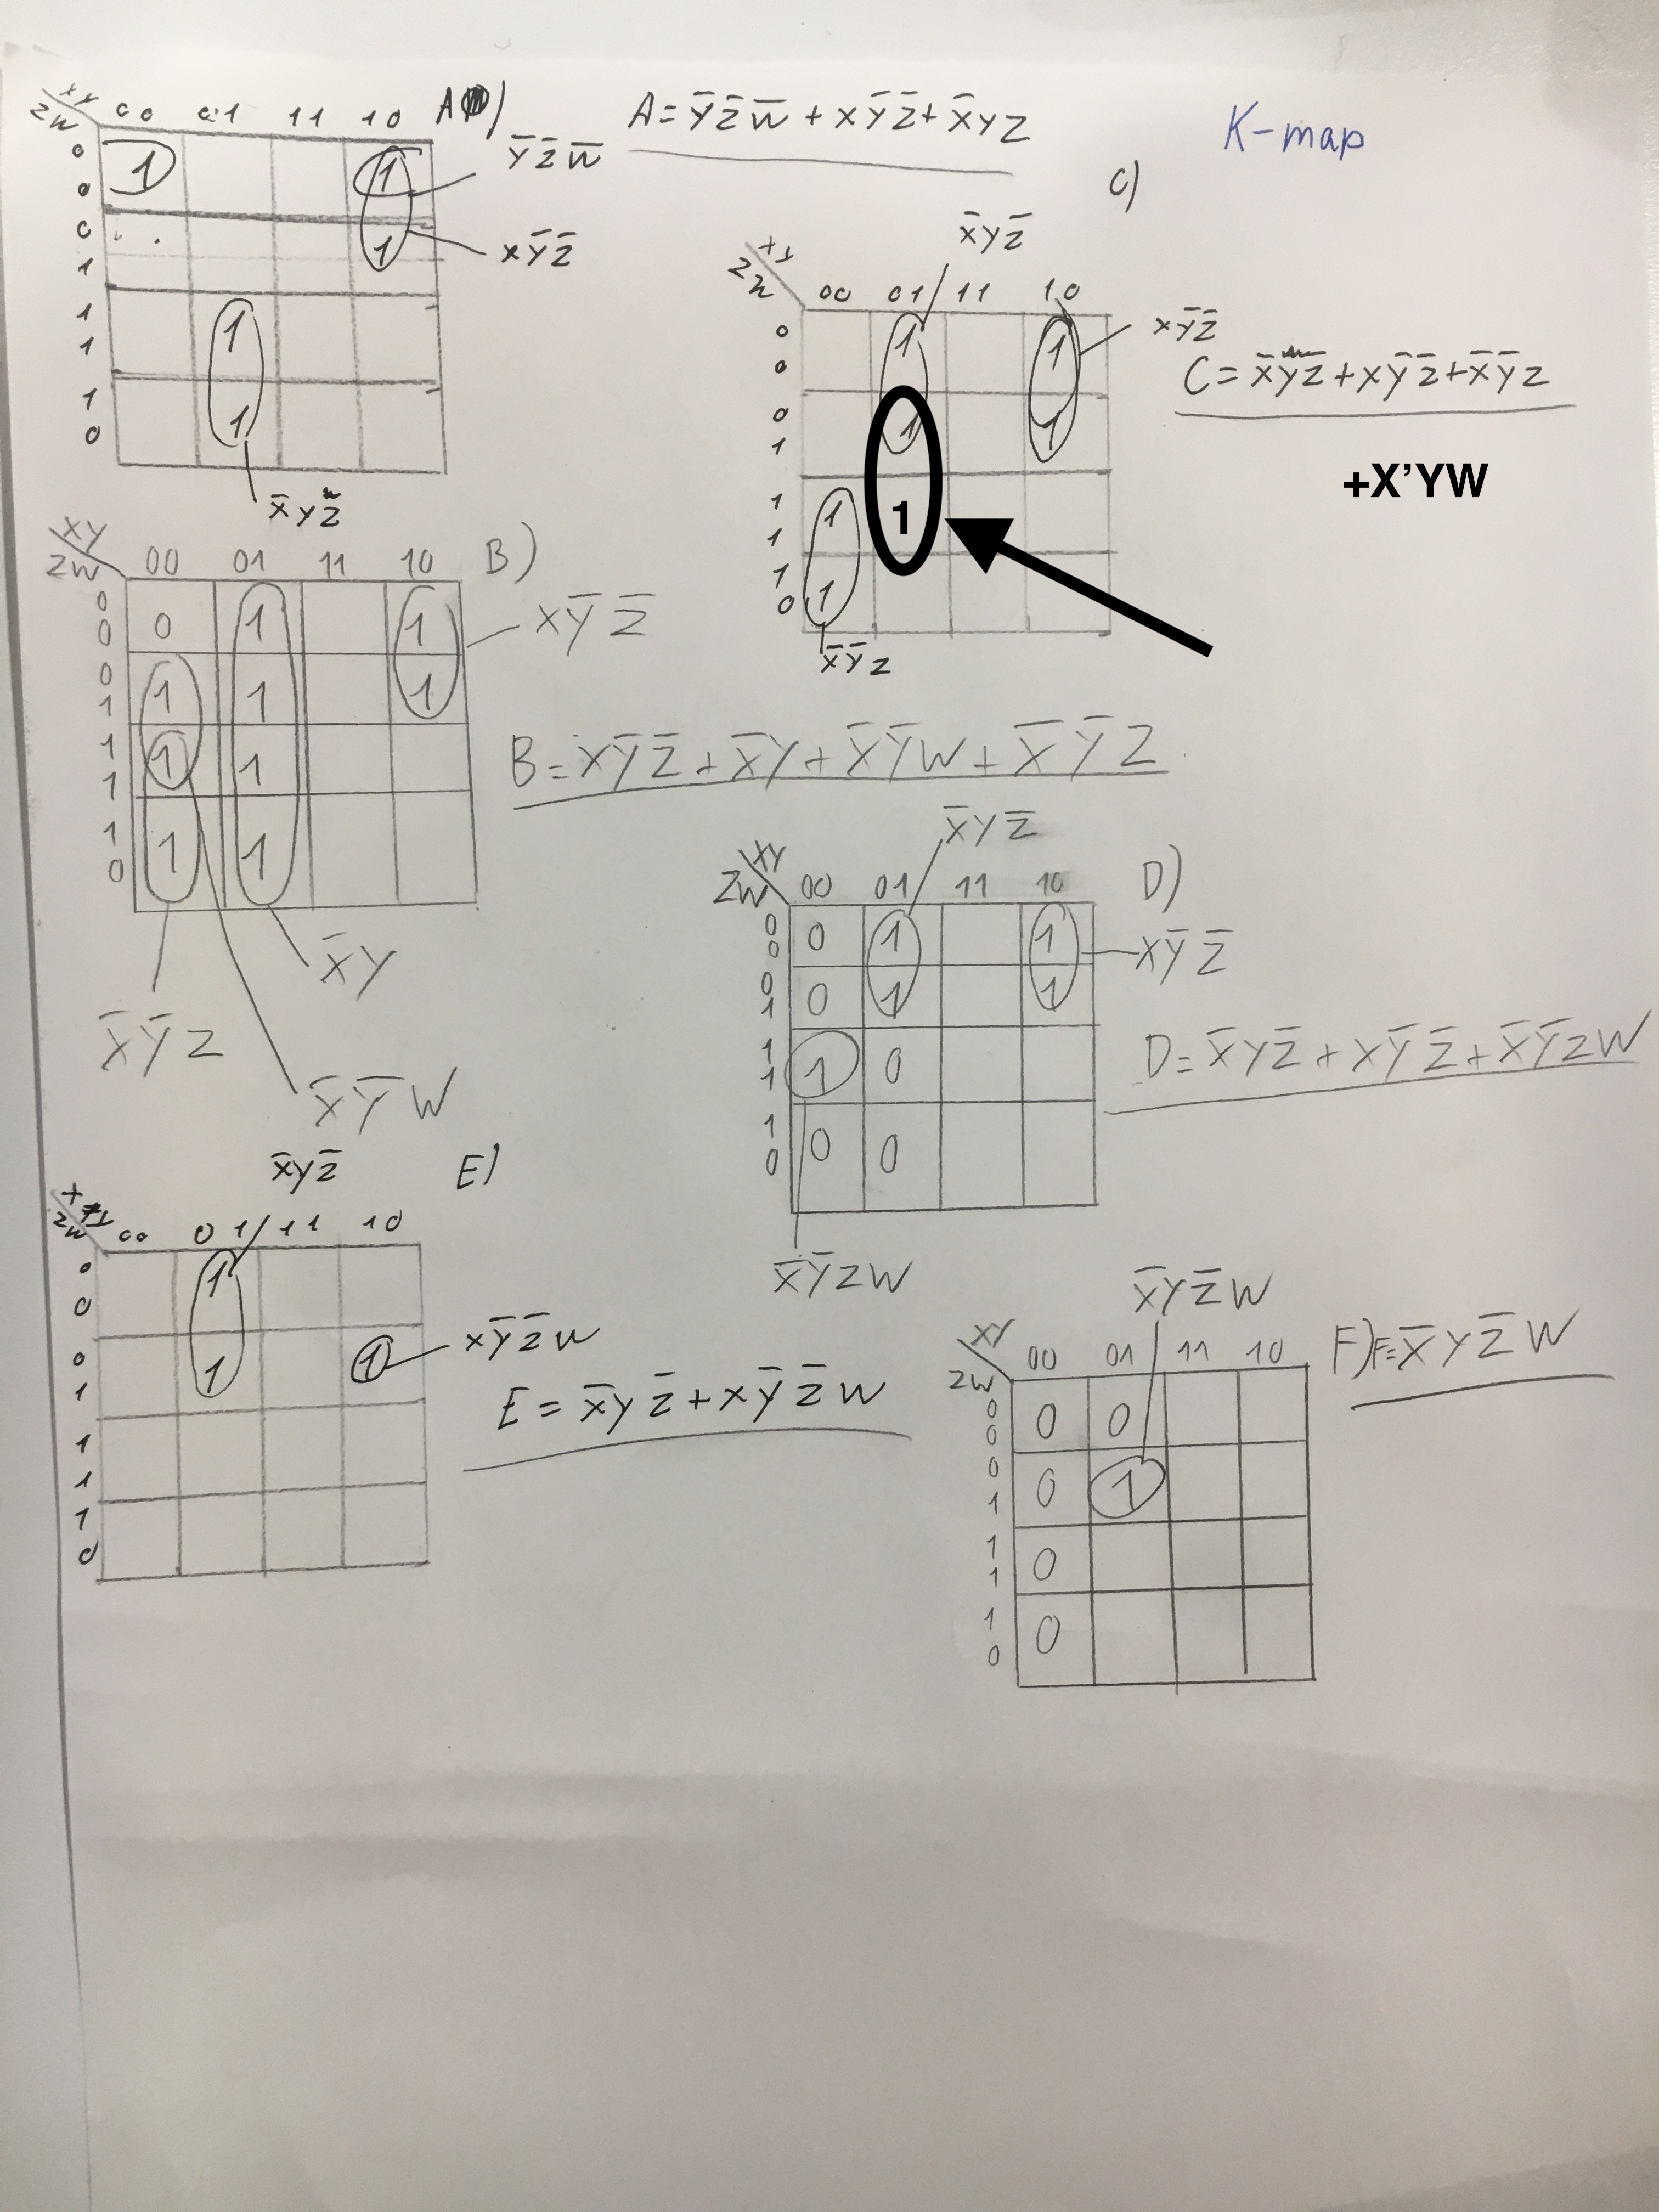 K-map
XY
ZW
00 01 11 10 A)
0 0 1 1
0 1 1
1 1 1
1 0 1
Y̅Z̅W̅
XY̅Z̅
X̅YZ
A=Y̅Z̅W̅+XY̅Z̅+X̅YZ
C)
X̅YZ̅
ZW
00 01 11 10
0 0 1 1
0 1 1 1
1 1 1 1
1 0 1
XY̅Z̅
X̅Y̅Z
C=X̅YZ̅+XY̅Z̅+X̅Y̅Z
+X'YW
XY
ZW
00 01 11 10 B)
0 0 0 1 1
0 1 1 1 1
1 1 1 1
1 0 1 1
XY̅Z̅
B=XY̅Z̅+X̅Y+X̅Y̅W+X̅Y̅Z
X̅Y
X̅Y̅Z
X̅Y̅W
X̅YZ̅
XY
ZW
00 01 11 10 D)
0 0 0 1 1
0 1 0 1 1
1 1 1 0
1 0 0 0
XY̅Z̅
D=X̅YZ̅+XY̅Z̅+X̅Y̅ZW
X̅Y̅ZW
X̅YZ̅ E)
ZW
00 01 11 10
0 0 1
0 1 1 1
1 1
1 0
XY̅Z̅W
E=X̅YZ̅+XY̅Z̅W
X̅YZ̅W
XY
ZW
00 01 11 10 F) F=X̅YZ̅W
0 0 0 0
0 1 0 1
1 1 0
1 0 0